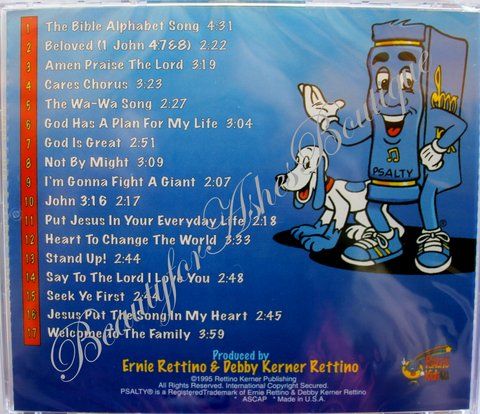 1 The Bible Alphabet Song 4:31
2 Beloved (1 John 4:7&8) 2:22
3 Amen Praise The Lord 3:19
4 Cares Chorus 3:23
5 The Wa-Wa Song 2:27
6 God Has A Plan For My Life 3:04
7 God Is Great 2:51
8 Not By Might 3:09
9 I'm Gonna Fight A Giant 2:07
10 John 3:16 2:17
11 Put Jesus In Your Everyday Life 2:18
12 Heart To Change The World 3:33
13 Stand Up! 2:44
14 Say To The Lord I Love You 2:48
15 Seek Ye First 2:44
16 Jesus Put The Song In My Heart 2:45
17 Welcome To The Family 3:59
PSALTY
BeautyforAshesBoutique
Produced by
Ernie Rettino & Debby Kerner Rettino
©1995 Rettino Kerner Publishing
All Rights Reserved. International Copyright Secured.
PSALTY® is a Registered Trademark of Ernie Rettino & Debby Kerner Rettino
ASCAP * Made in U.S.A.